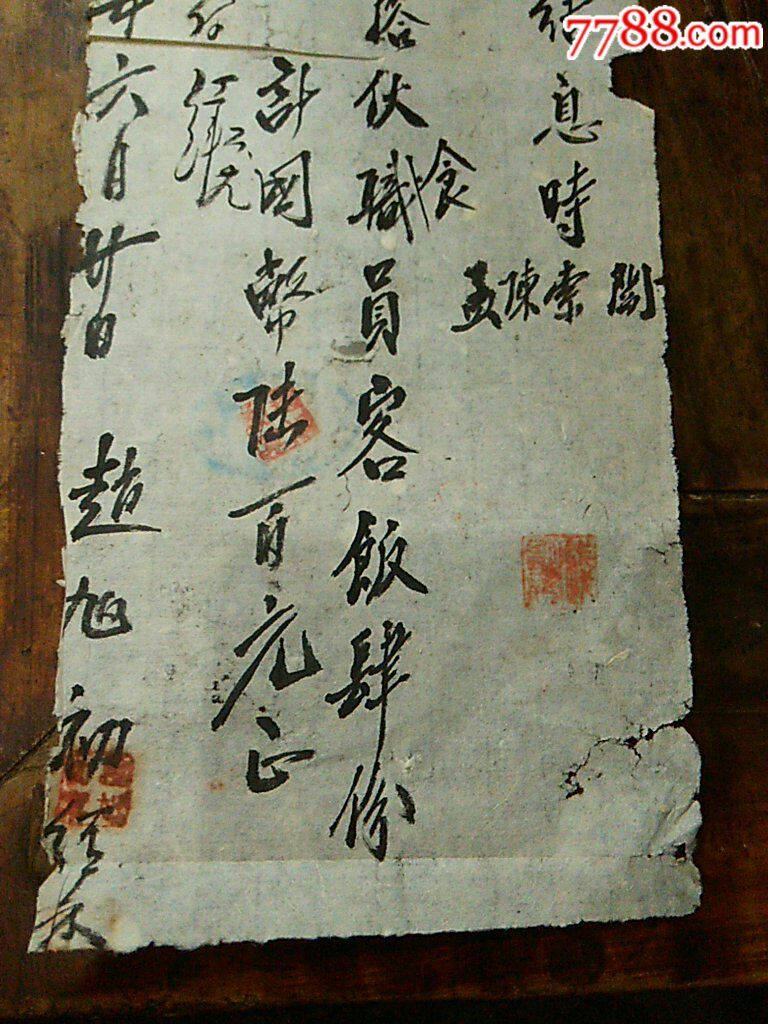 7788.com
結息時
閻
索
陳
孟
搭伙職員客飯肆份
食
計國幣陸百元正
年六月廿日 趙旭初 經衣